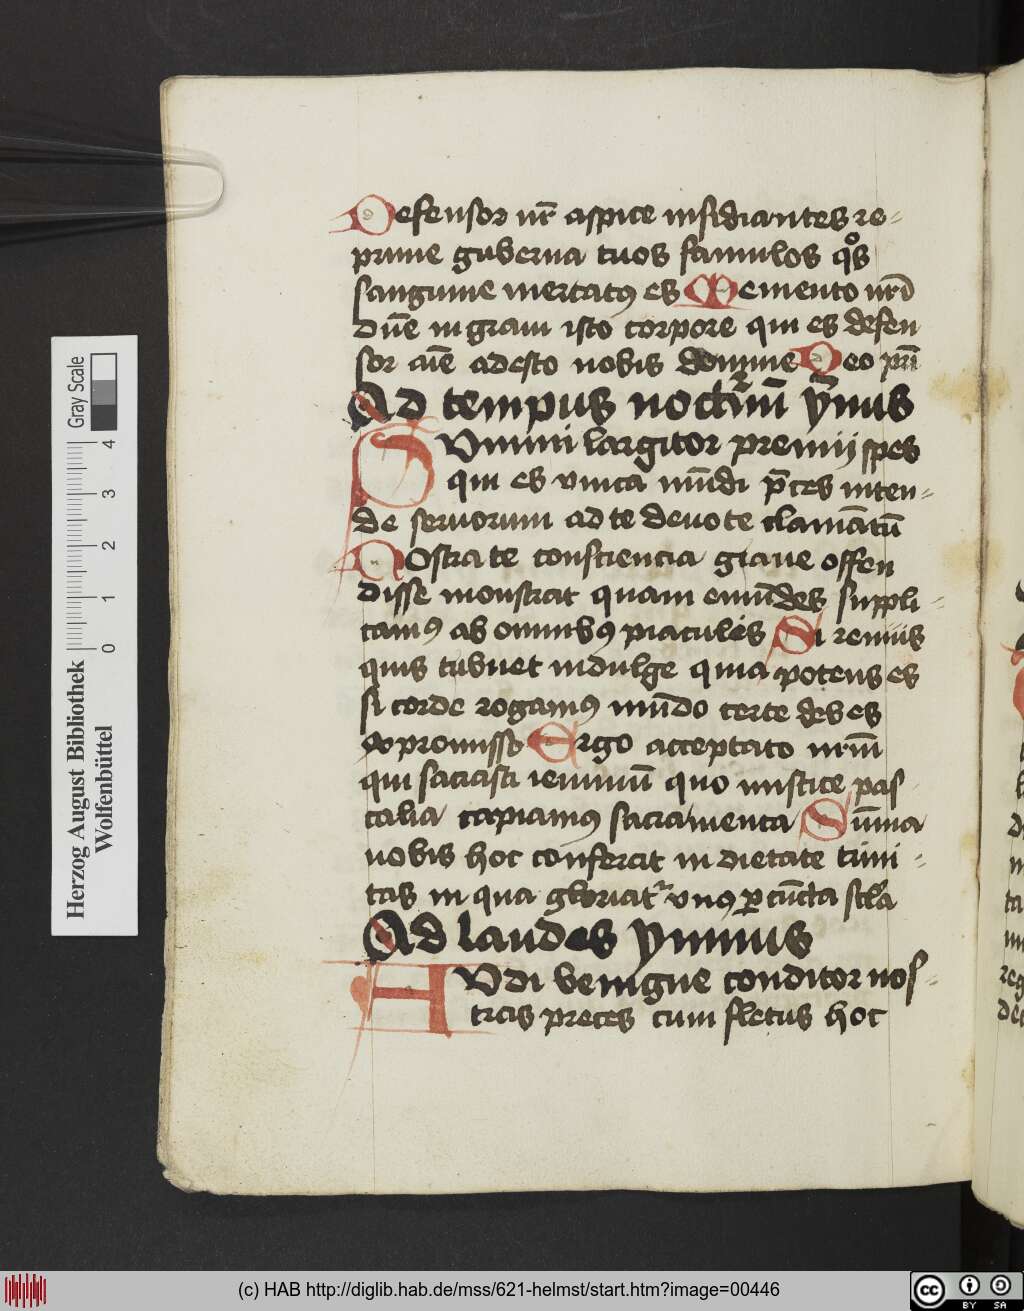 Defensor nr̄ aspice insidiantes re-
prime guberna tuos famulos qͦs
sanguine mercatꝰ es Memento nr̄i
dn̄e in graui isto corpore qui es defen
sor aīe adesto nobis domine Deo pr̄i
Ad tempus noctᷣnū ymnus
SVmmi largitor premij spes
qui es vnica mūdi p̄ces inten-
de seruorum ad te deuote clamātū
Nostra te consciencia graue offen
disse monstrat quam emūdes suppli-
camꝰ ab omnibꝰ piaculis Si renuis
quis tribuet indulge quia potens es
si corde rogamꝰ mūdo certe debes
ex promisso Ergo acceptato nr̄m
qui sacrasti ieiuniū quo mistice pas
calia capiamꝰ sacramenta Sūma
nobis hoc conferat in dietate trini-
tas in qua gloriatᷣ vnꝰ ꝑ cūcta scl̄a
Ad laudes ymnus
AVdi benigne conditor nos-
tras preces cum fletus hoc
Herzog August Bibliothek
Wolfenbüttel
Gray Scale
0 1 2 3 4
(c) HAB http://diglib.hab.de/mss/621-helmst/start.htm?image=00446
cc BY SA